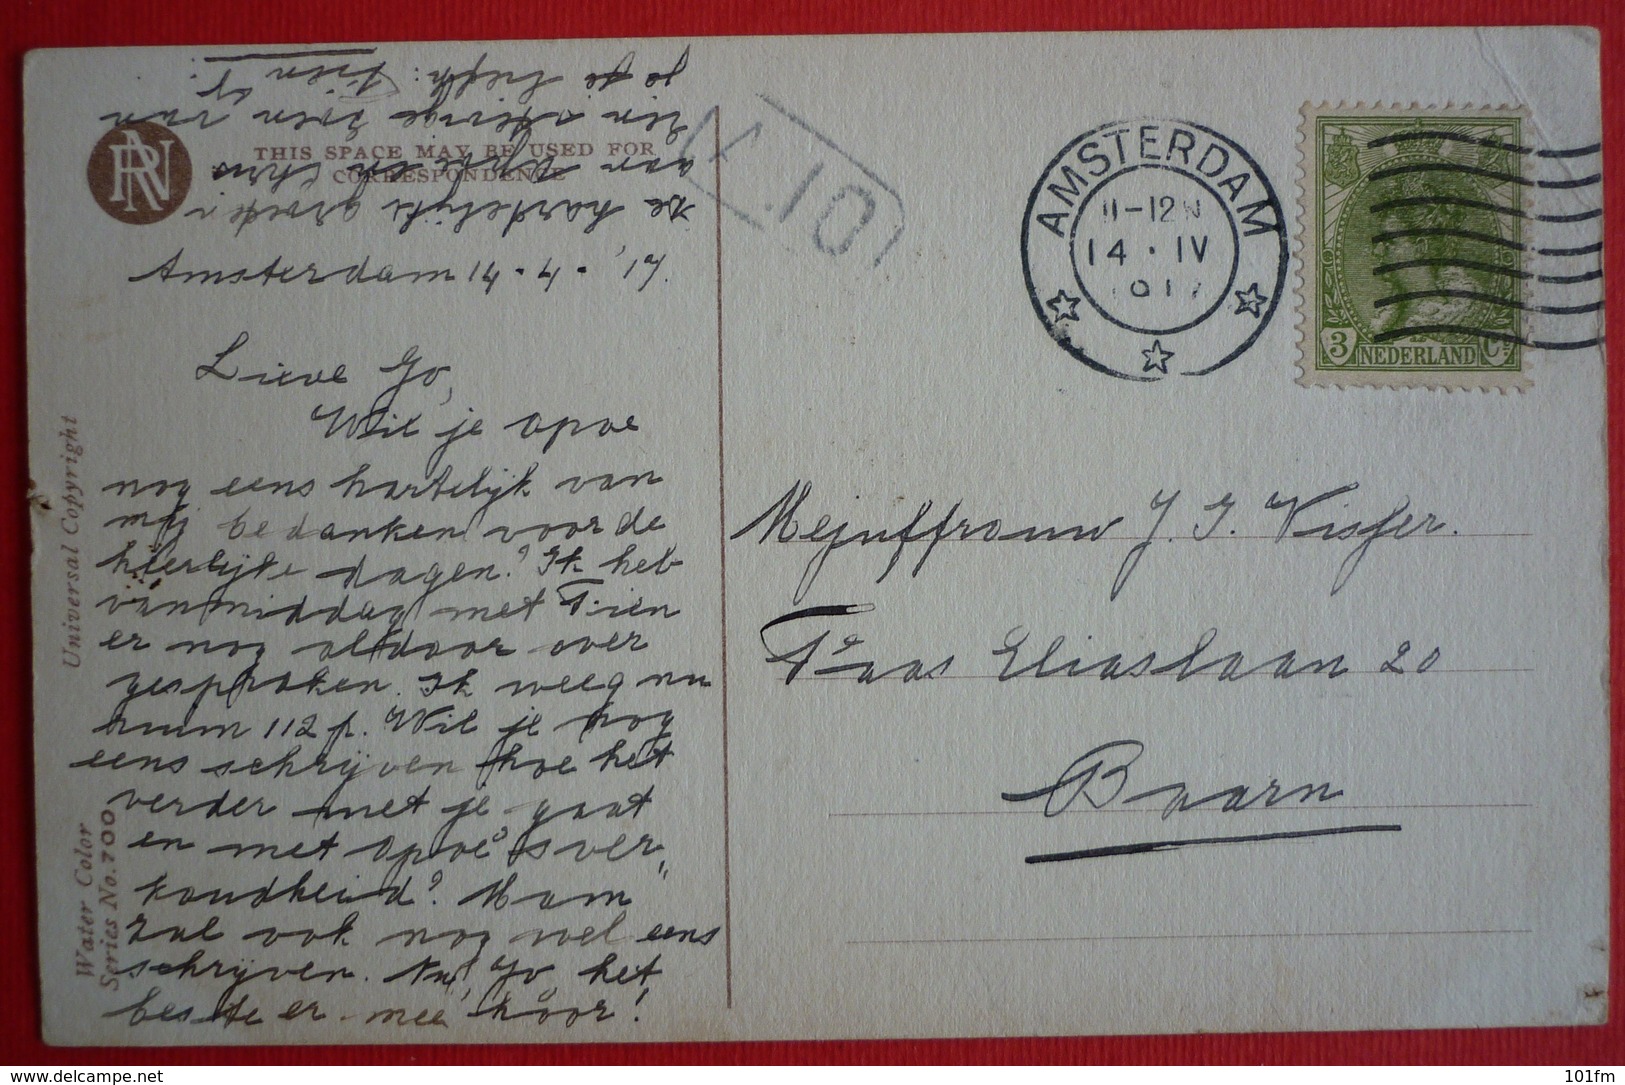 THIS SPACE MAY BE USED FOR
CORRESPONDENCE
Amsterdam 14-4-'17.
Lieve Jo,
Wil je opoe
nog eens hartelijk van
mij bedanken voor de
heerlijke dagen? Ik heb
vanmiddag met Tien
er nog altdoor over
gesproken. Ik weeg nu
ruim 112 p. Wil je nog
eens schrijven hoe het
verder met je gaat
en met opoe's ver„
koudheid? Mam
zal ook nog wel eens
schrijven. Nu, Jo, het
beste er mee hoor!
de hartelijke groeten
aan opoe en Chris
en stevige zoen van
je je liefh: Tien
Universal Copyright
Water Color
Series No. 700
A. 10
AMSTERDAM
11-12 N
14 · IV
1917
3 NEDERLAND Ct
Mejuffrouw J. J. Visser.
Faas Eliaslaan 20
Baarn
101fm